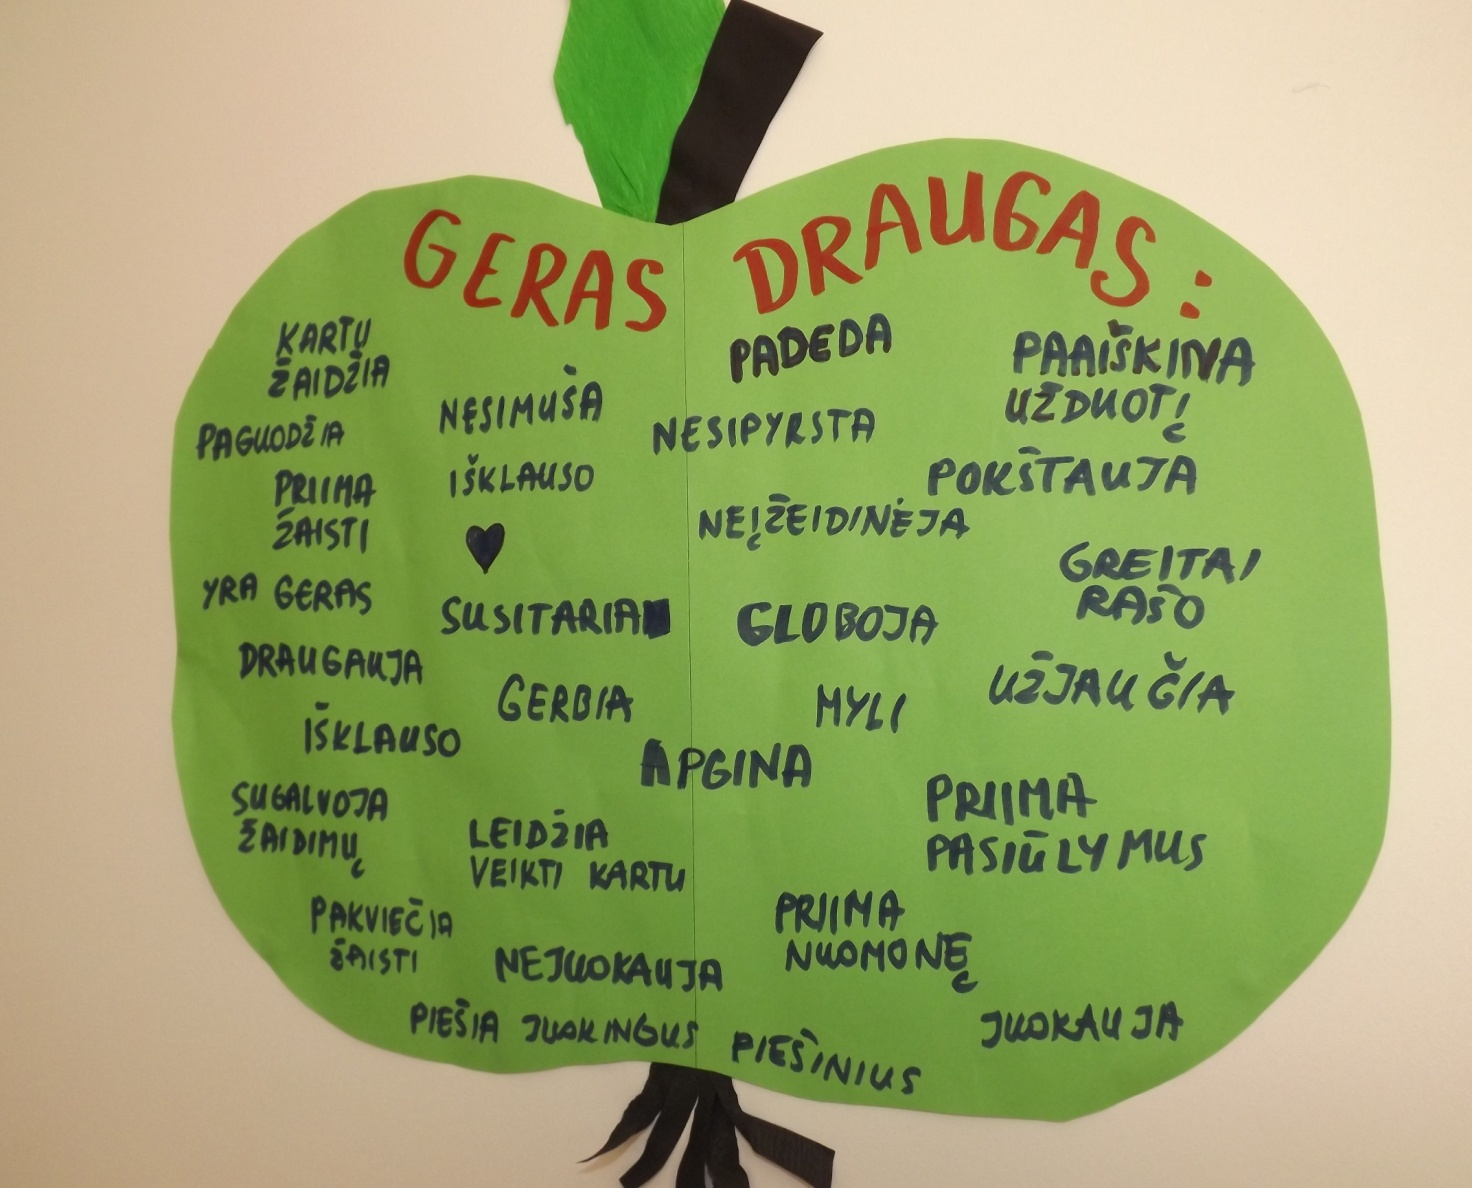 GERAS DRAUGAS:
KARTU
ŽAIDŽIA
PAGUODŽIA
PRIIMA
ŽAISTI
YRA GERAS
DRAUGAUJA
IŠKLAUSO
SUGALVOJA
ŽAIDIMŲ
PAKVIEČIA
ŽAISTI
NESIMUŠA
IŠKLAUSO
SUSITARIA
GERBIA
LEIDŽIA
VEIKTI KARTU
NEJUOKAUJA
PIEŠIA JUOKINGUS PIEŠINIUS
PADEDA
NESIPYKSTA
NEĮŽEIDINĖJA
GLOBOJA
MYLI
APGINA
PRIIMA
NUOMONĘ
PAAIŠKINA
UŽDUOTĮ
POKŠTAUJA
GREITAI
RAŠO
UŽJAUČIA
PRIIMA
PASIŪLYMUS
JUOKAUJA